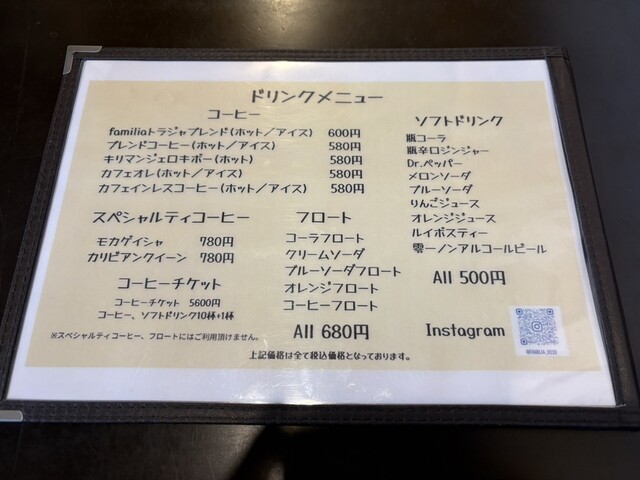 ドリンクメニュー
コーヒー
familiaトラジャブレンド(ホット/アイス) 600円
ブレンドコーヒー(ホット/アイス) 580円
キリマンジェロキボー(ホット) 580円
カフェオレ(ホット/アイス) 580円
カフェインレスコーヒー(ホット/アイス) 580円
スペシャルティコーヒー
モカゲイシャ 780円
カリビアンクイーン 780円
コーヒーチケット
コーヒーチケット 5600円
コーヒー、ソフトドリンク10杯+1杯
※スペシャルティコーヒー、フロートにはご利用頂けません。
フロート
コーラフロート
クリームソーダ
ブルーソーダフロート
オレンジフロート
コーヒーフロート
All 680円
ソフトドリンク
瓶コーラ
瓶辛口ジンジャー
Dr.ペッパー
メロンソーダ
ブルーソーダ
りんごジュース
オレンジジュース
ルイボスティー
零一ノンアルコールビール
All 500円
Instagram
上記価格は全て税込価格となっております。